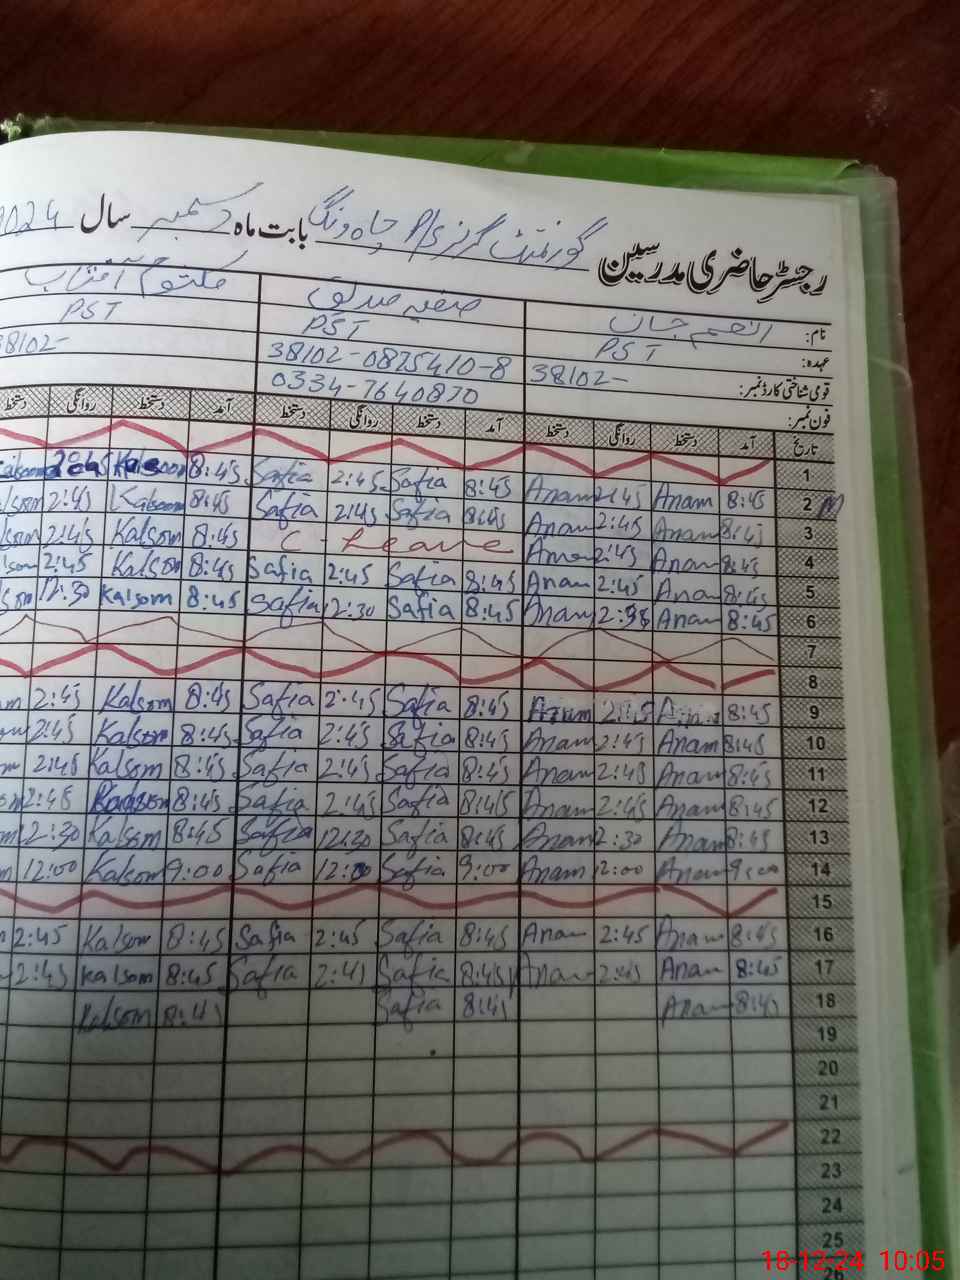 رجسٹر حاضری مدرسین گورنمنٹ گرلز P/S چاہ ونگ بابت ماہ دسمبر سال 2024
نام: انعم جان صفیہ صدیق کلثوم آفتاب
عہدہ: PST PST PST
قومی شناختی کارڈ نمبر: 38102- 38102-0875410-8 38102-
فون نمبر: 0334-7640870
تاریخ آمد دستخط روانگی دستخط آمد دستخط روانگی دستخط آمد دستخط روانگی دستخط
1
2 8:45 Anam 2:45 Anam 8:45 Safia 2:45 Safia 8:45 Kalsoom 2:45 Kalsoom
3 8:45 Anam 2:45 Anam 8:45 Safia 2:45 Safia 8:45 Kalsoom 2:45
4 8:45 Anam 2:45 Anam C-Leave 8:45 Kalsom 2:45
5 8:45 Anam 2:45 Anam 8:45 Safia 2:45 Safia 8:45 Kalsom 2:45
6 8:45 Anam Anam 8:45 Safia 12:30 Safia 8:45 Kalsom 12:30
7
8
9 8:45 Anam 2:45 Anam 8:45 Safia 2:45 Safia 8:45 Kalsom 2:45
10 8:45 Anam 2:45 Anam 8:45 Safia 2:45 Safia 8:45 Kalsom 2:45
11 8:45 Anam 2:45 Anam 8:45 Safia 2:45 Safia 8:45 Kalsom 2:45
12 8:45 Anam 2:45 Anam 8:45 Safia 2:45 Safia 8:45 Kalsom 2:45
13 8:45 Anam 2:30 Anam 8:45 Safia 12:30 Safia 8:45 Kalsom 2:30
14 9:00 Anam 12:00 Anam 9:00 Safia 12:00 Safia 9:00 Kalsom 12:00
15
16 8:45 Anam 2:45 Anam 8:45 Safia 2:45 Safia 8:45 Kalsom 2:45
17 8:45 Anam 2:45 Anam 8:45 Safia 2:45 Safia 8:45 Kalsom 2:45
18 8:45 Anam 8:45 Safia 8:45 Kalsom
19
20
21
22
23
24
25
26
18-12-24 10:05